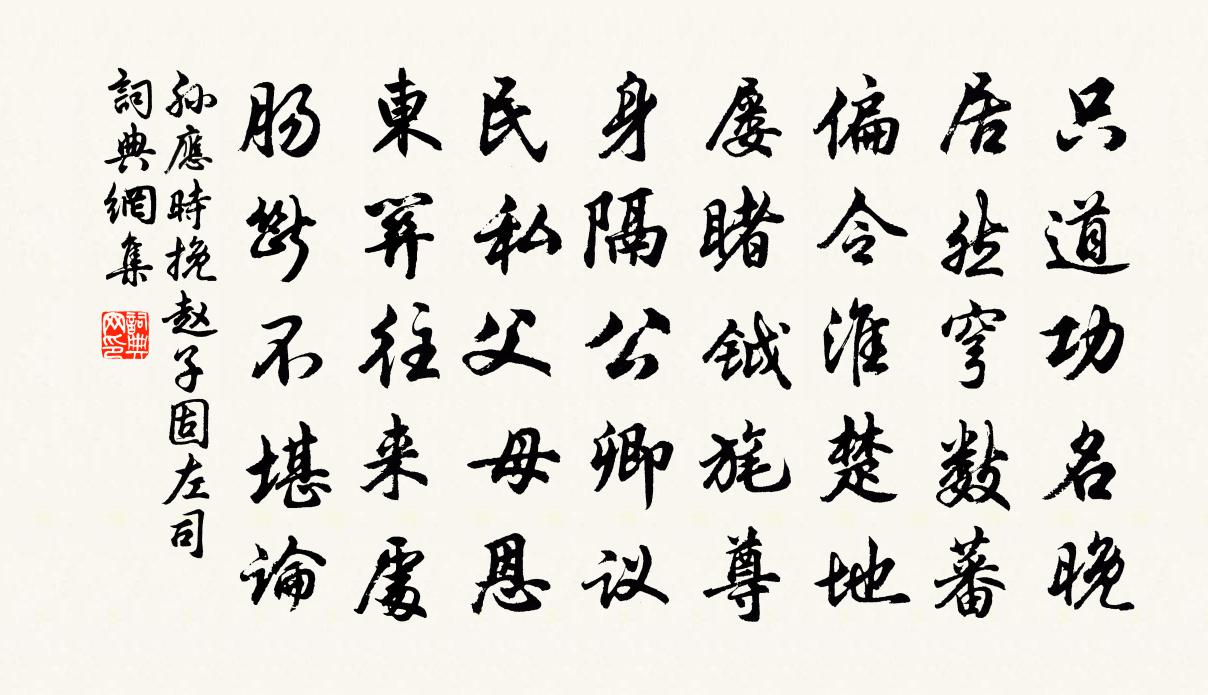 只道功名晚
居然穹数蕃
偏令淮楚地
屡睹钺旄尊
身隔公卿议
民私父母恩
東往来處
肠断不堪论
孙應時挽赵子固左司
詞典網集
詞典网印